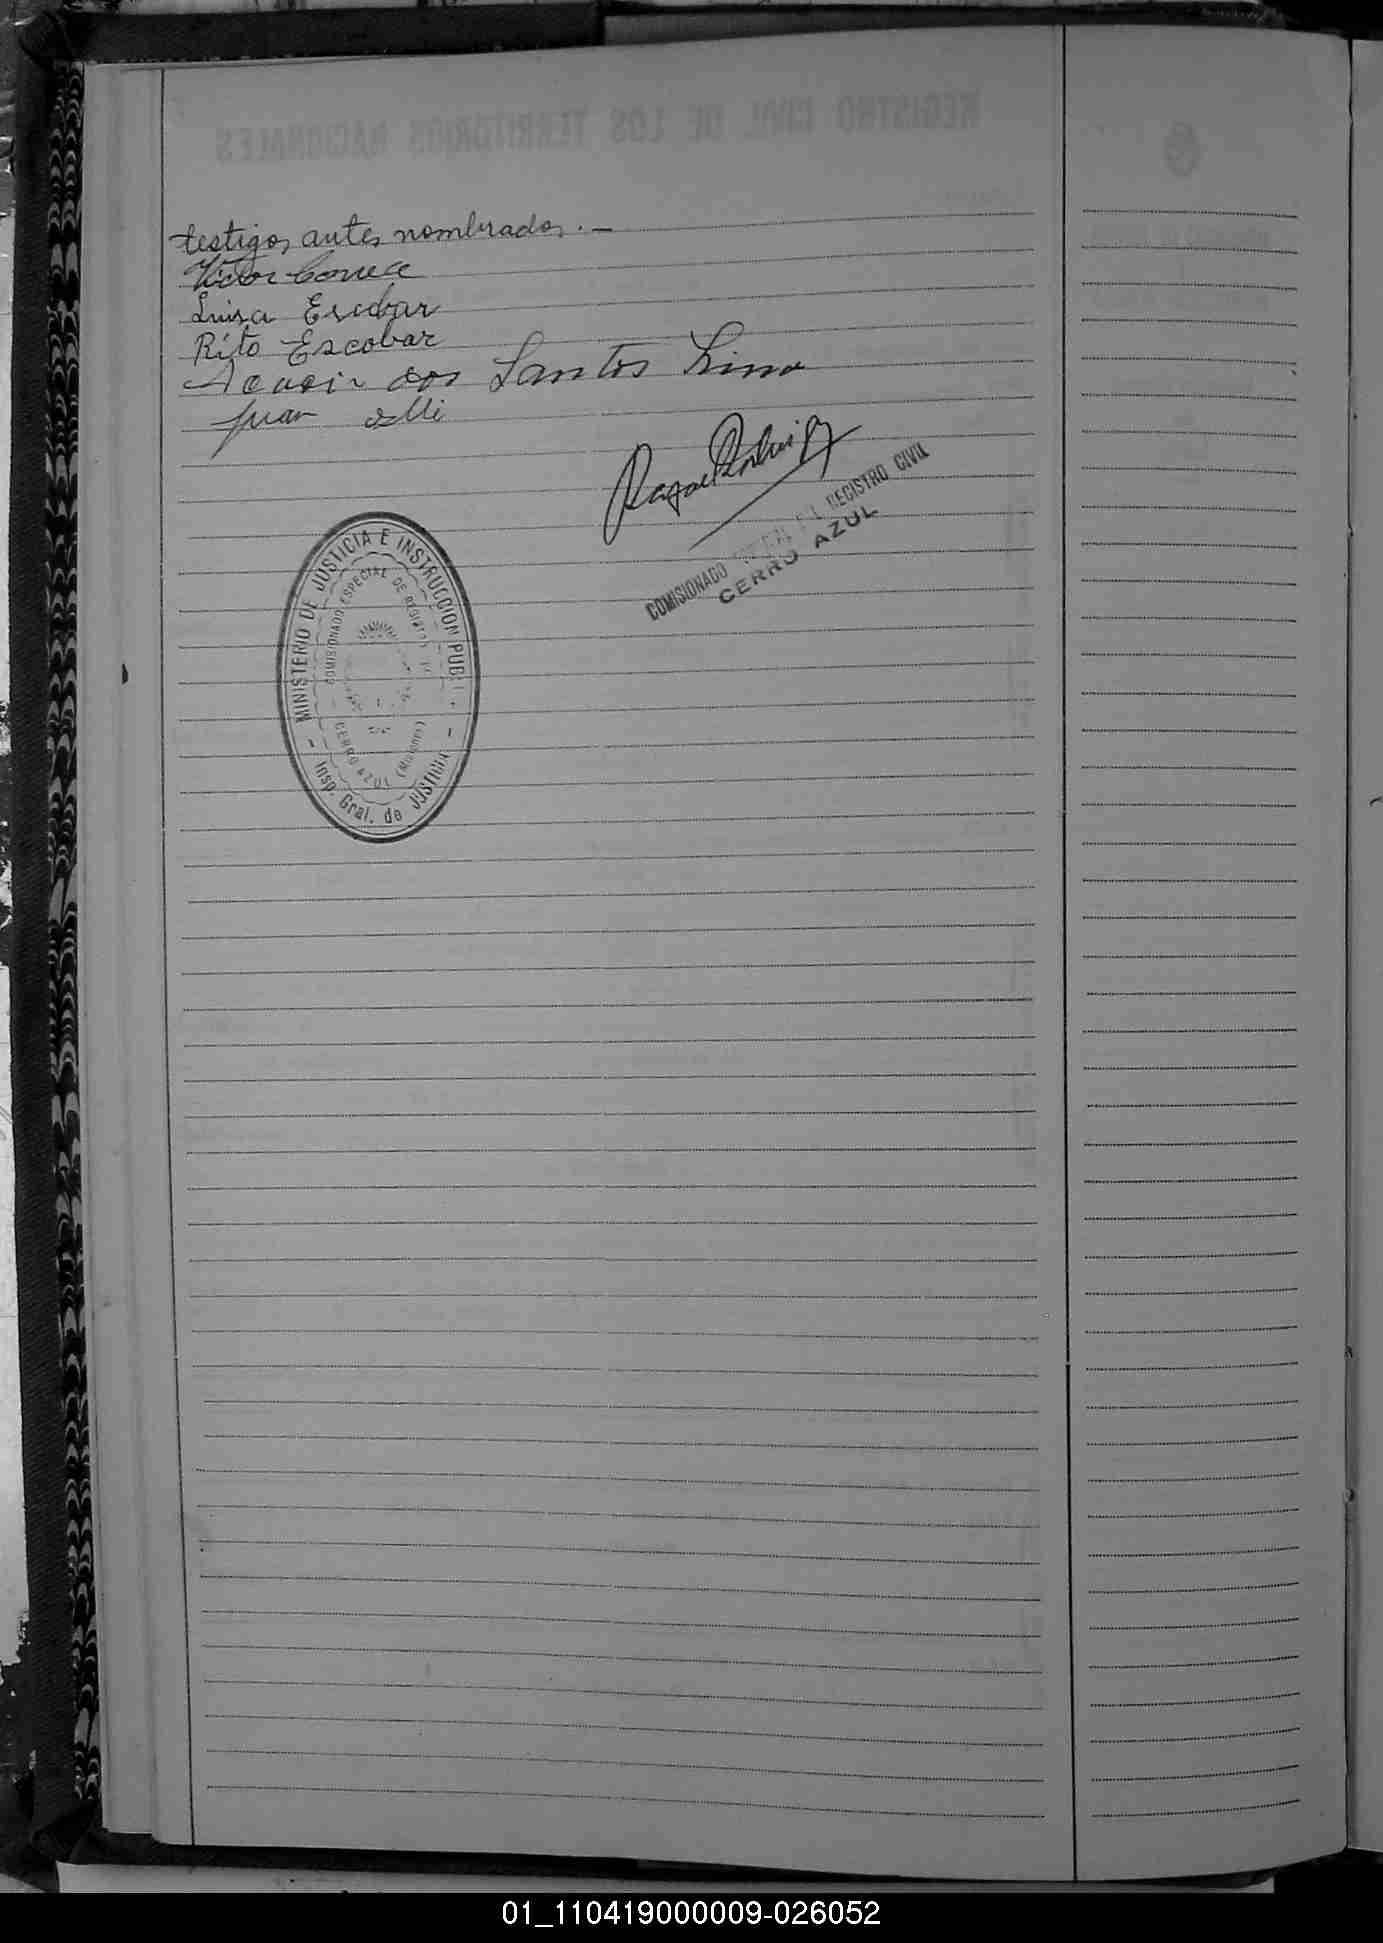 testigos antes nombrados. —
Victor Correa
Luisa Escobar
Rito Escobar
dos Santos Lima
Juan
COMISIONADO REGISTRO CIVIL
CERRO AZUL
MINISTERIO DE JUSTICIA E INSTRUCCION
COMISIONADO ESPECIAL DE
CERRO AZUL (Misiones)
Insp. Gral. de JUSTICIA
REGISTRO CIVIL DE LOS TERRITORIOS NACIONALES
01_110419000009-026052